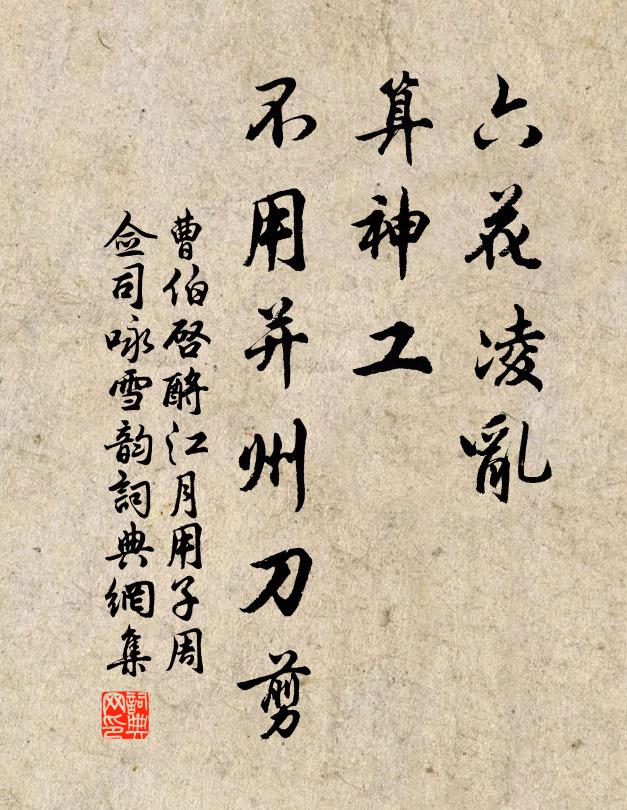 六花凌亂
算神工
不用并州刀剪
曹伯啓酹江月用子周
僉司咏雪韵詞典網集
詞典网印